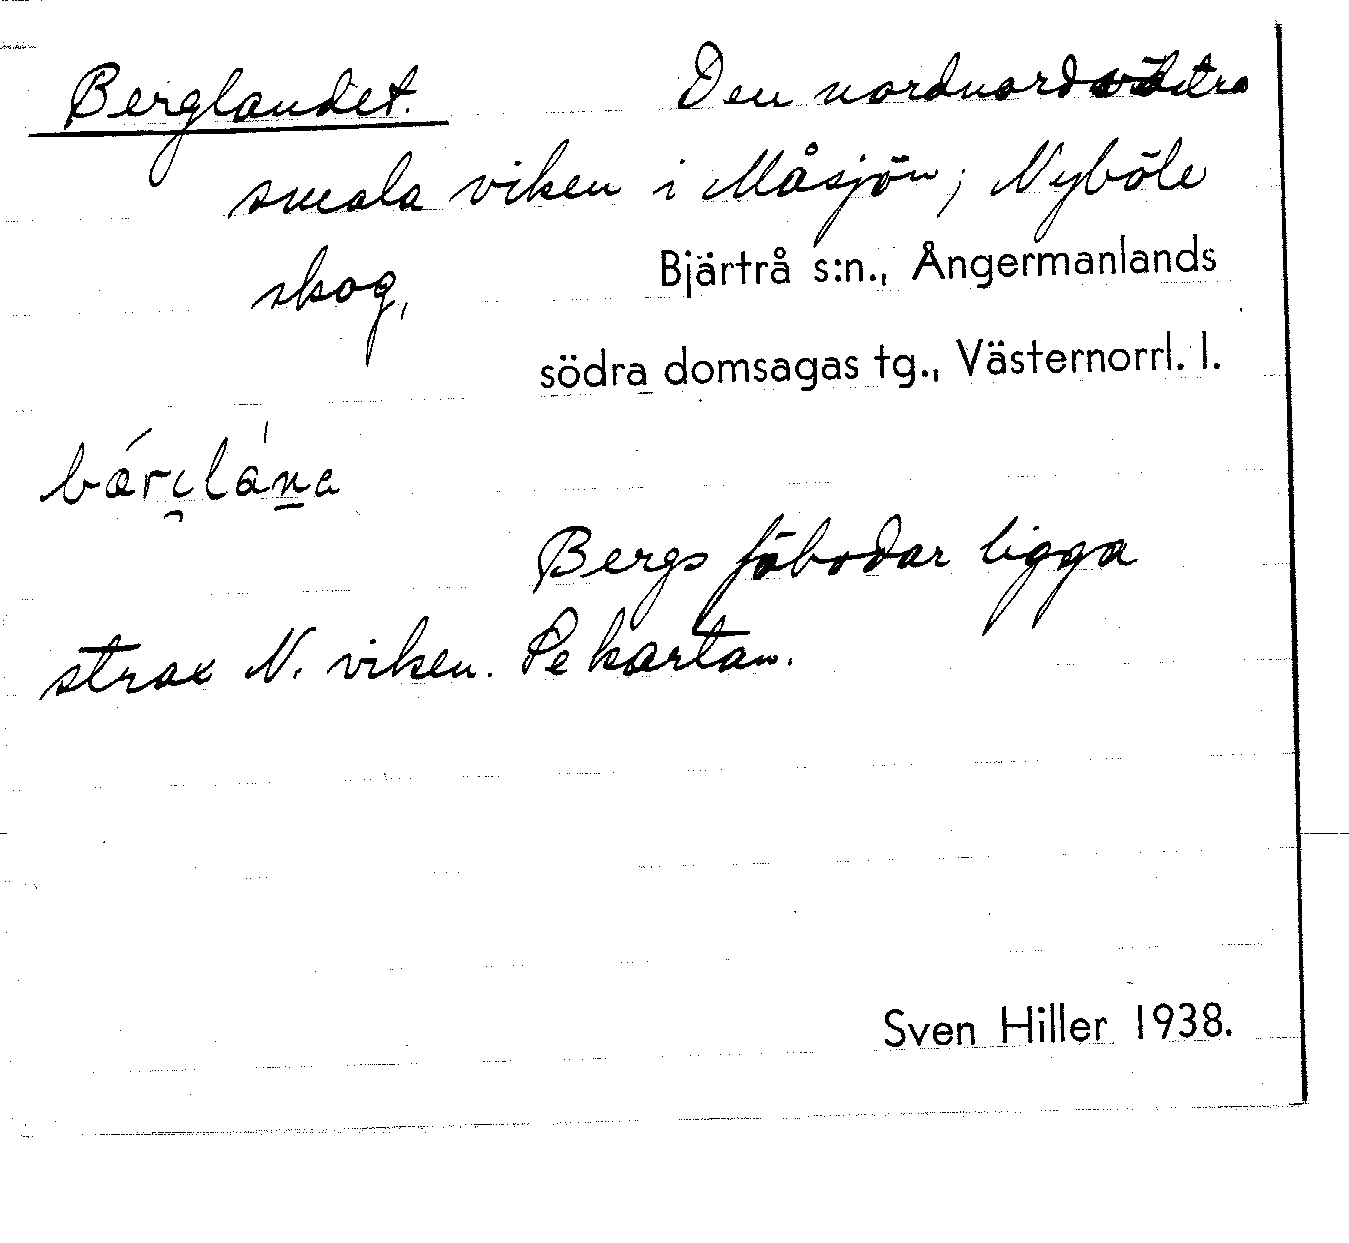 Berglandet. Den nordnordvästra
smala viken i Måsjön; Nyböle
skog, Bjärtrå s:n., Ångermanlands
södra domsagas tg., Västernorrl. l.
Bergs fäbodar ligga
strax N. viken. Se kartan.
Sven Hiller 1938.